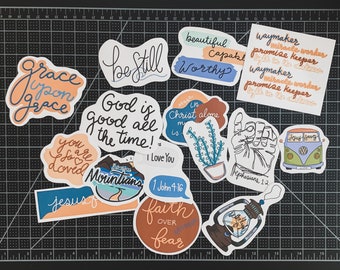 grace
upon
grace
be still
beautiful
capable
Worthy
waymaker
miracle worker
promise keeper
waymaker
miracle worker
promise keeper
God is
good all
the time!
in
Christ alone
you
are
so
Loved
I Love You
1 John 4:16
Mountains
Ephesians
Jesus
faith
over
fear